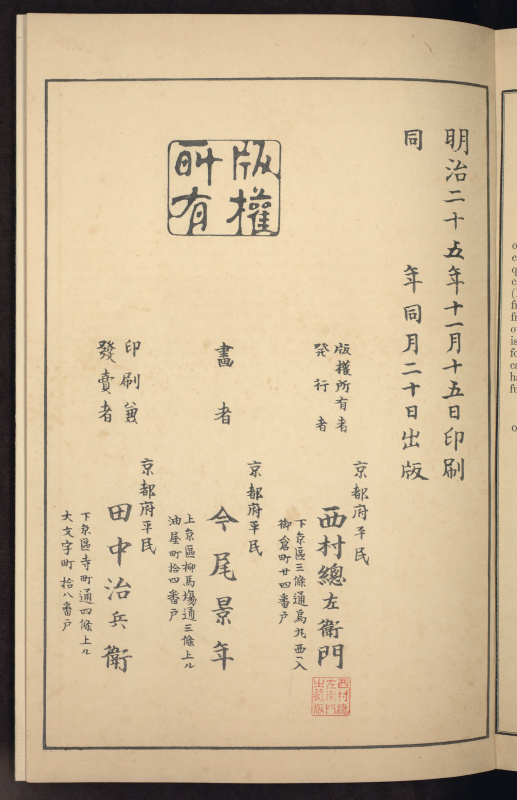 明治二十五年十一月十五日印刷
同年同月二十日出版
版權
所有
版權所有者
發行者
京都府平民
西村總左衛門
下京區三條通烏丸西入
御倉町廿四番戸
西村總
左衛門
出製版
畵者
京都府平民
今尾景年
上京區柳馬塲通三條上ル
油屋町拾四番戸
印刷兼
發賣者
京都府平民
田中治兵衛
下京區寺町通四條上ル
大文字町拾八番戸